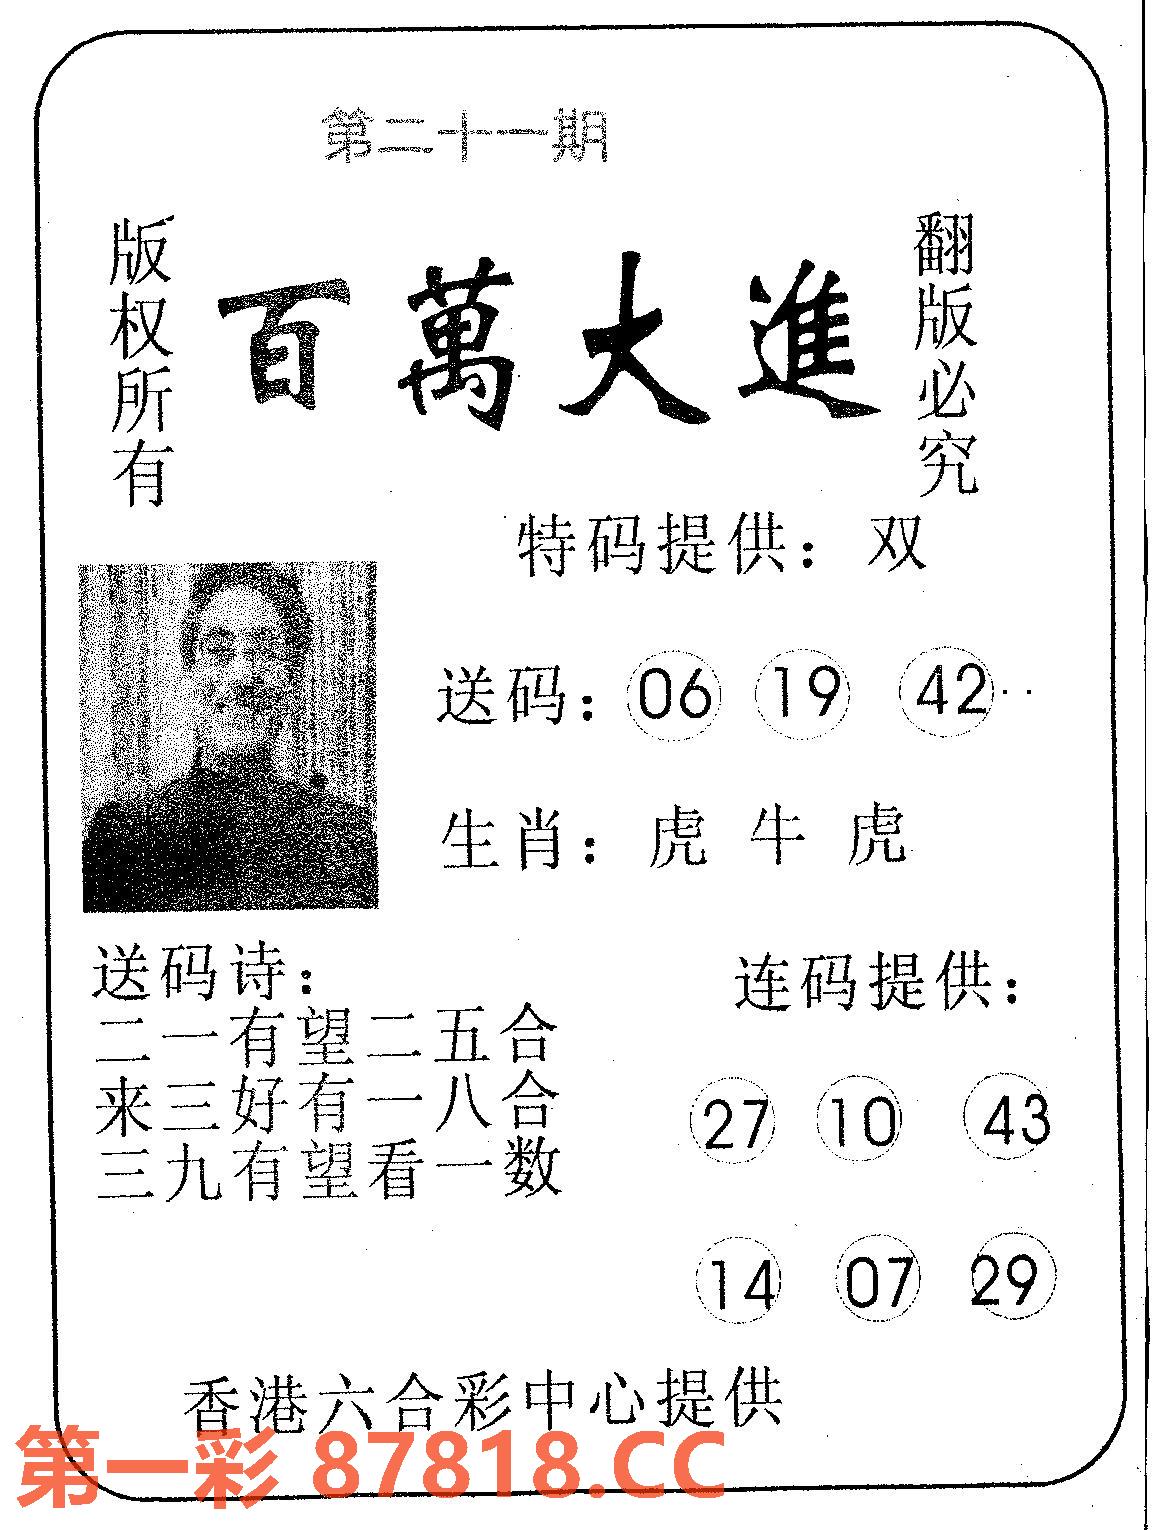 第二十一期
版权所有
百萬大進
翻版必究
特码提供：双
送码：06 19 42
生肖：虎 牛 虎
送码诗：
二一有望二五合
来三好有一八合
三九有望看一数
连码提供：
27 10 43
14 07 29
香港六合彩中心提供
第一彩 87818.CC